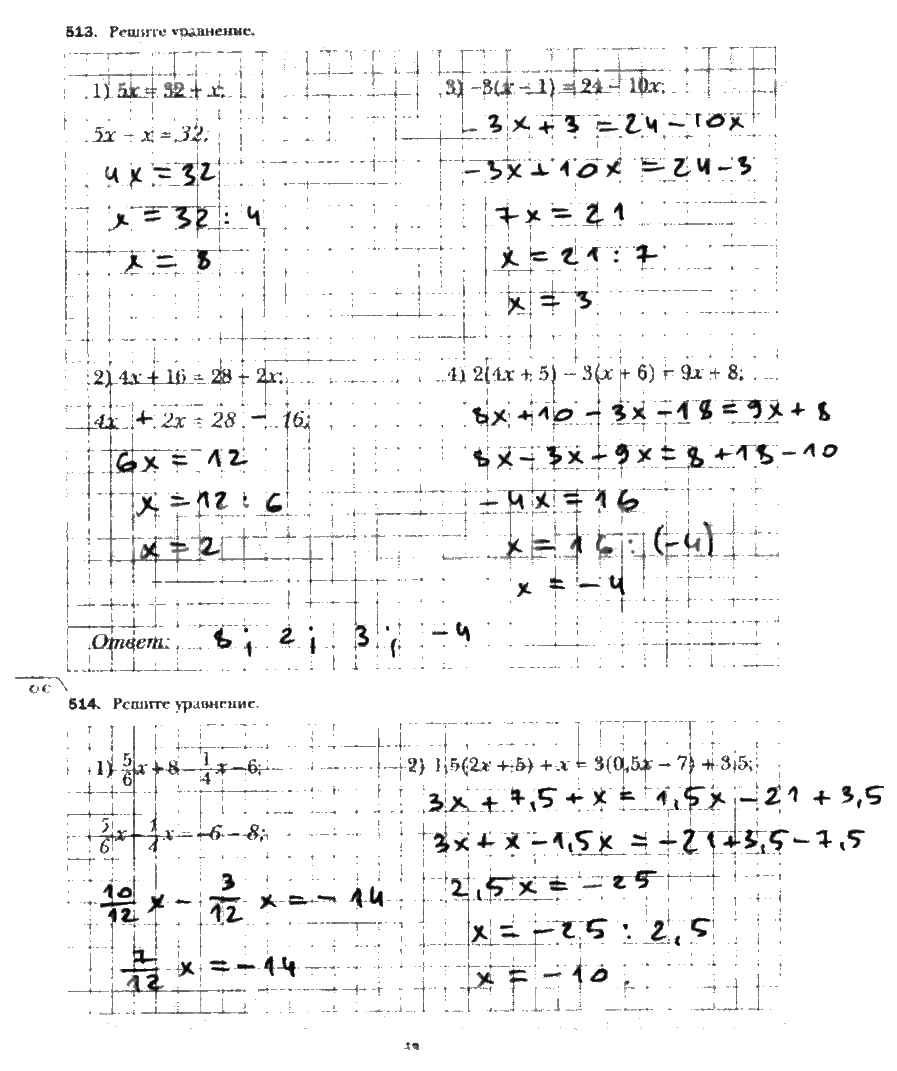 513. Решите уравнение.
1) 5x = 32 + x;
5x - x = 32;
4x = 32
x = 32 : 4
x = 8
3) -3(x - 1) = 24 - 10x;
-3x + 3 = 24 - 10x
-3x + 10x = 24 - 3
7x = 21
x = 21 : 7
x = 3
2) 4x + 16 = 28 - 2x;
4x + 2x = 28 - 16;
6x = 12
x = 12 : 6
x = 2
4) 2(4x + 5) - 3(x + 6) = 9x + 8;
8x + 10 - 3x - 18 = 9x + 8
8x - 3x - 9x = 8 + 18 - 10
-4x = 16
x = 16 : (-4)
x = -4
Ответ: 8; 2; 3; -4
514. Решите уравнение.
1) 5/6 x + 8 = 1/4 x - 6;
5/6 x - 1/4 x = -6 - 8;
10/12 x - 3/12 x = -14
7/12 x = -14
2) 1,5(2x + 5) + x = 3(0,5x - 7) + 3,5;
3x + 7,5 + x = 1,5x - 21 + 3,5
3x + x - 1,5x = -21 + 3,5 - 7,5
2,5x = -25
x = -25 : 2,5
x = -10.